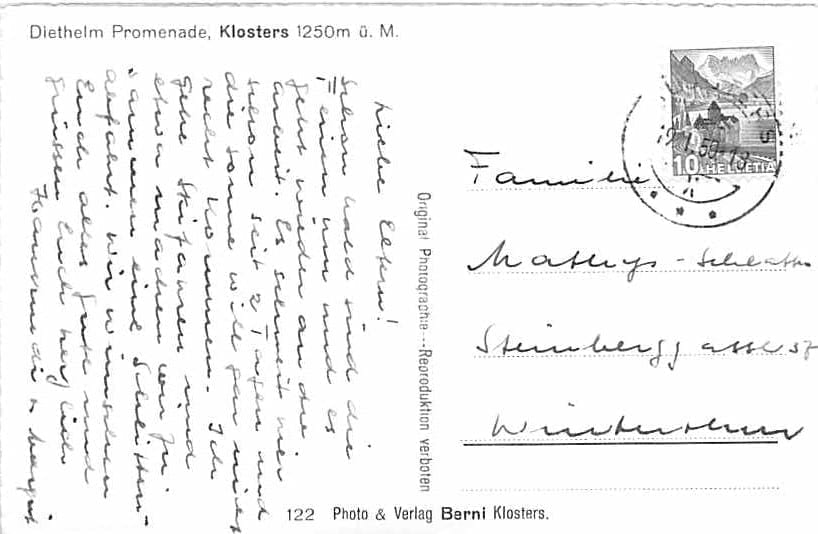 Diethelm Promenade, Klosters 1250m ü. M.
Liebe Eltern!
Schon bald sind die
Ferien um und es
geht wieder an die
arbeit. Es schneit hier
schon seit 2 Tagen und
die Sonne will gar nicht
recht kommen. Ich
gehe Skifahren und
etwa machen wir zu-
sammen eine Schlitten-
abfahrt. Wir wünschen
Euch alles gute und
grüssen Euch herzlich
Hansruedi & Margrit.
Original Photographie - Reproduktion verboten
HELVETIA
10
Familie
Mathys - Schlatter
Steinberggasse 57
Winterthur
122 Photo & Verlag Berni Klosters.